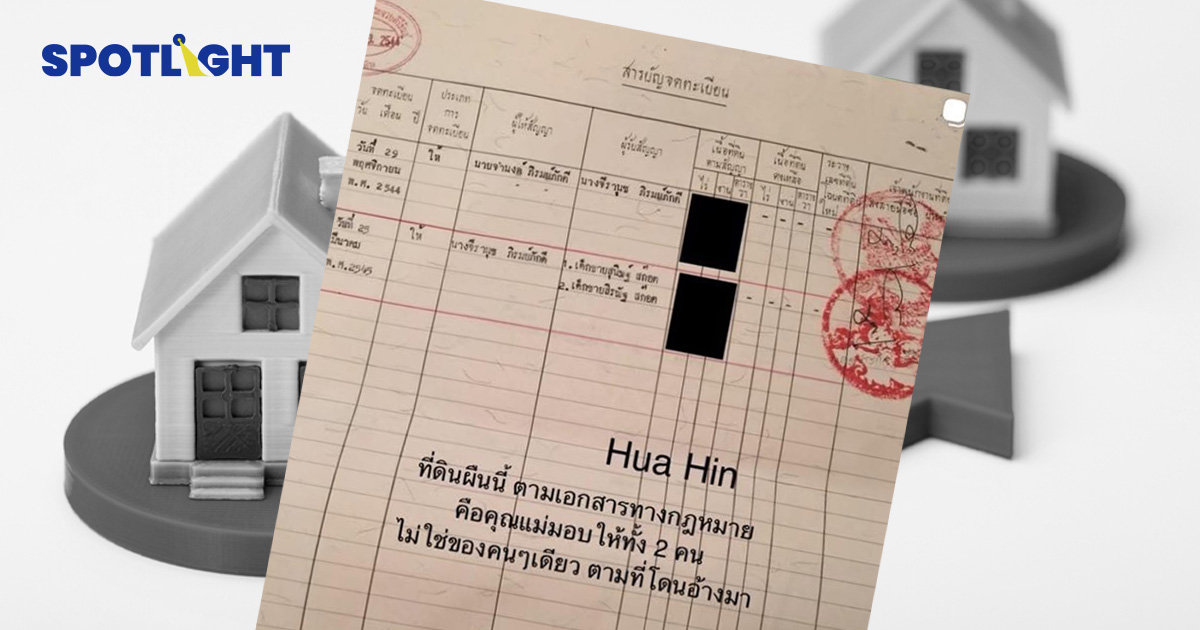 SPOTLIGHT
สารบัญจดทะเบียน
จดทะเบียน
วัน เดือน ปี
ประเภท
การ
จดทะเบียน
ผู้ให้สัญญา
ผู้รับสัญญา
เนื้อที่ดิน
ตามสัญญา
ไร่ งาน ตาราง
วา
เนื้อที่ดิน
คงเหลือ
ไร่ งาน ตาราง
วา
ระวาง
เลขที่ดิน
โฉนดที่ดิน
ใหม่
วันที่ 29
พฤศจิกายน
พ.ศ. 2544
ให้
นายจำนงค์ ภิรมย์ภักดี
นางจีรานุช ภิรมย์ภักดี
วันที่ 25
มีนาคม
พ.ศ.2545
ให้
นางจีรานุช ภิรมย์ภักดี
1. เด็กชายสุนิษฐ์ สก๊อต
2. เด็กชายสิรณัฐ สก๊อต
Hua Hin
ที่ดินผืนนี้ ตามเอกสารทางกฎหมาย
คือคุณแม่มอบให้ทั้ง 2 คน
ไม่ใช่ของคนๆเดียว ตามที่โดนอ้างมา